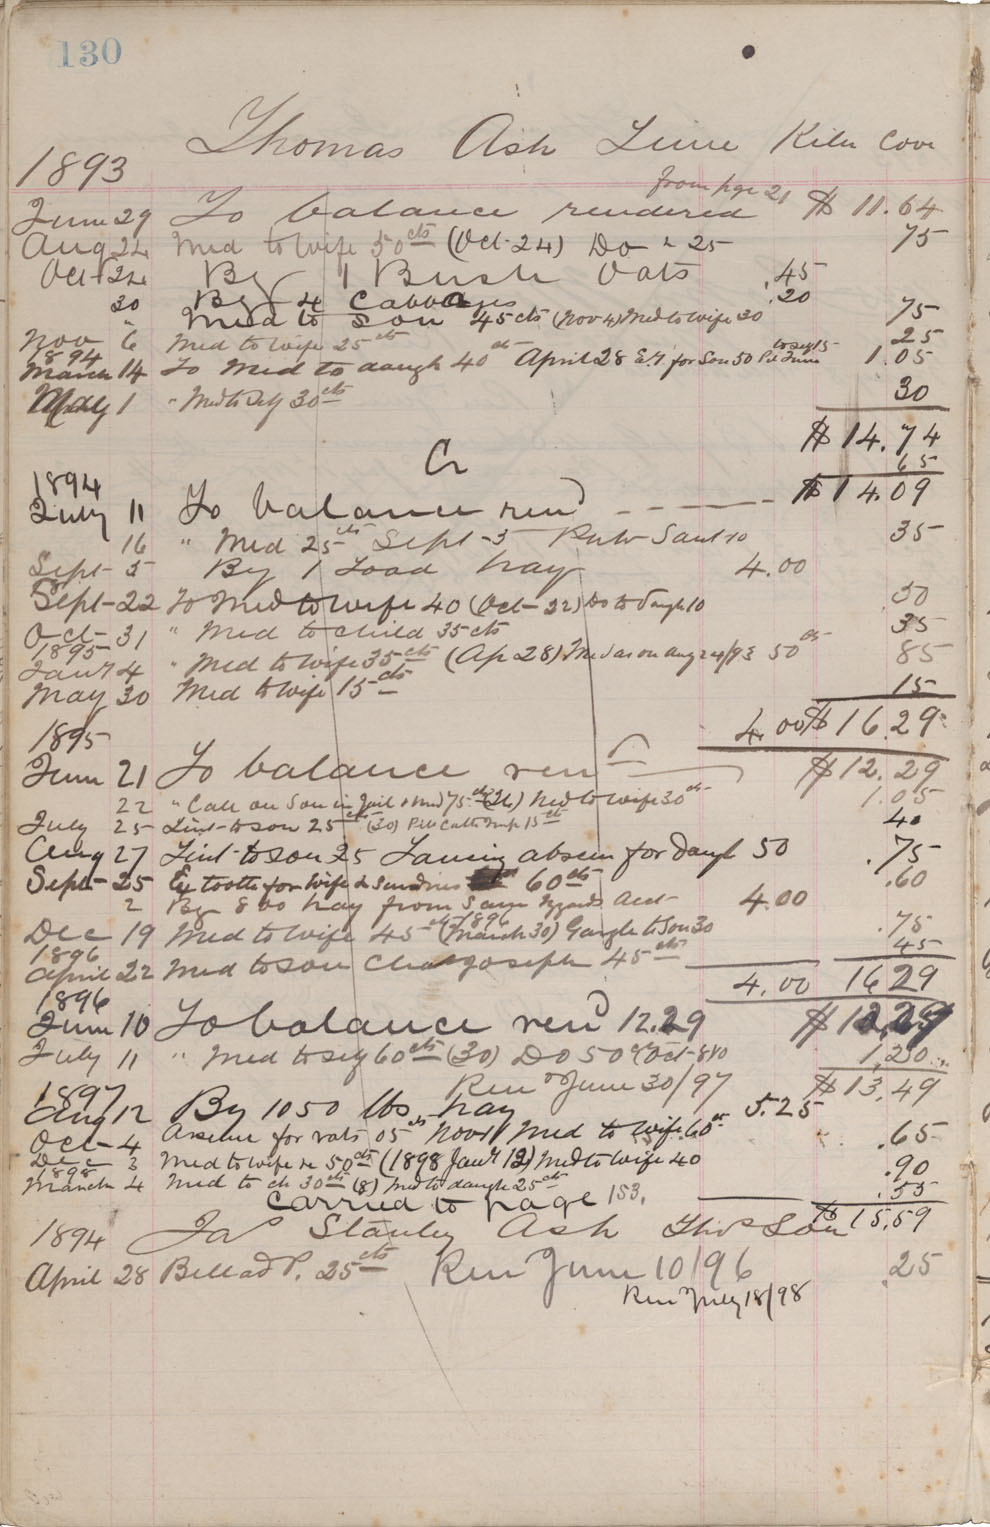 130
Thomas Ash Lime Kiln Cove
1893
from page 21
June 29 To balance rendered $ 11.64
Aug 24 Med to wife 50cts (Oct 24) Do 25 75
Oct 24 By 1 Bush Oats .45
30 By 4 Cabbages .20
" Med to son 45 cts (Nov 4) Med to wife 30 75
Nov 6 Med to wife 25cts 25
1894
March 14 To Med to daugh 40cts April 28 for Son 50 to self 15 1.05
May 1 " Med to self 30cts 30
$ 14.74
Cr 65
1894 $ 14.09
July 11 To balance rend
16 " Med 25cts Sept 3 10 35
Sept 5 By 1 Load hay 4.00
Sept 22 To Med to wife 40 (Oct 22) Do to daugh 10 .50
Oct 31 " Med to child 35 cts 35
1895
Jany 4 " Med to wife 35cts (Ap 28) Med as on Aug 24/93 50cts 85
May 30 Med to wife 15cts 15
4.00 $ 16.29
1895
June 21 To balance rend $ 12.29
22 " Call on Son in Jail & Med 75cts (26) Med to wife 30cts 1.05
July 25 Lint to son 25cts (30) 15cts 40
Aug 27 Lint to son 25 Lancing abscess for daugh 50 .75
Sept 25 Ex tooth for wife & Sundries 60cts .60
2 By 800 hay from Sam acct 4.00
Dec 19 Med to wife 45cts (1896 March 30) Gargle to Son 30 .75
1896
April 22 Med to son Chas Joseph 45cts 45
4.00 16.29
1896
June 10 To balance rend 12.29 $ 12.29
July 11 " Med to self 60cts (30) Do 50cts (Oct 8) 10 1.20
Ren June 30/97 $ 13.49
1897
Aug 12 By 1050 lbs hay 5.25
Oct 4 Arsenic for rats 05cts Nov 11 Med to wife 60cts .65
Dec 3 Med to wife 50cts (1898 Jany 13) Med to wife 40 .90
1898
March 4 Med to ch 30cts (8) Med to daugh 25cts .55
Carried to page 153. $ 15.59
1894 Jas Stanley Ash Thos Son
April 28 Bellad P. 25cts Ren June 10/96 .25
Ren July 18/98